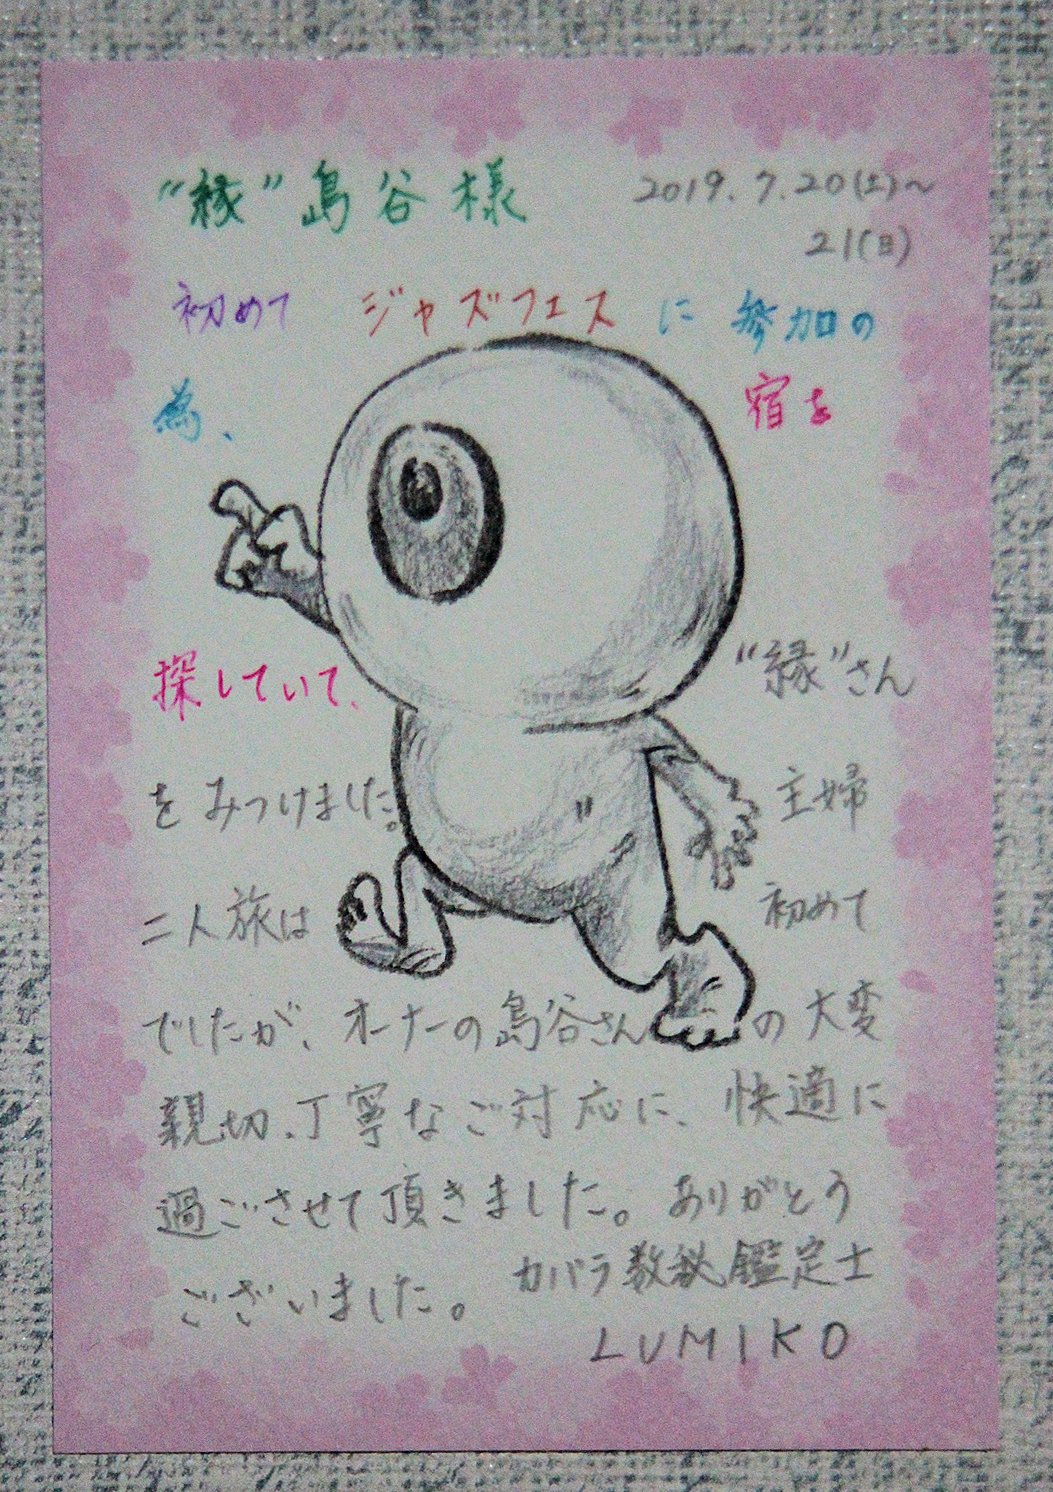 "縁"島谷様
2019.7.20(土)~
21(日)
初めて ジャズフェス に 参加の
為、 宿を
探していて、 "縁"さん
をみつけました。 主婦
二人旅は 初めて
でしたが、オーナーの島谷さんの大変
親切、丁寧なご対応に、快適に
過ごさせて頂きました。ありがとう
ございました。
カバラ数秘鑑定士
LUMIKO